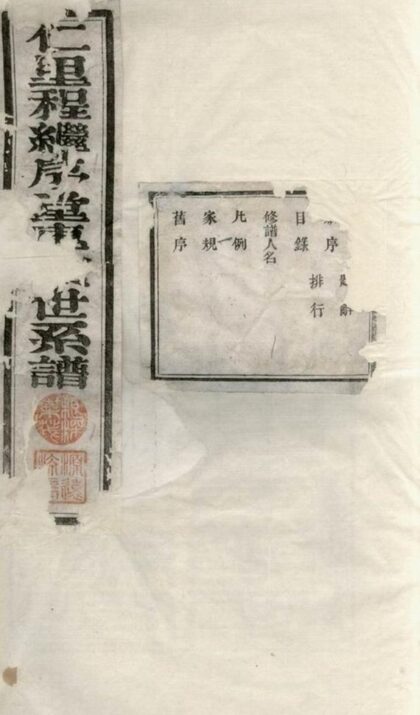 序
排行
目錄
修譜人名
凡例
家規
舊序
仁里程繼序堂專世系譜